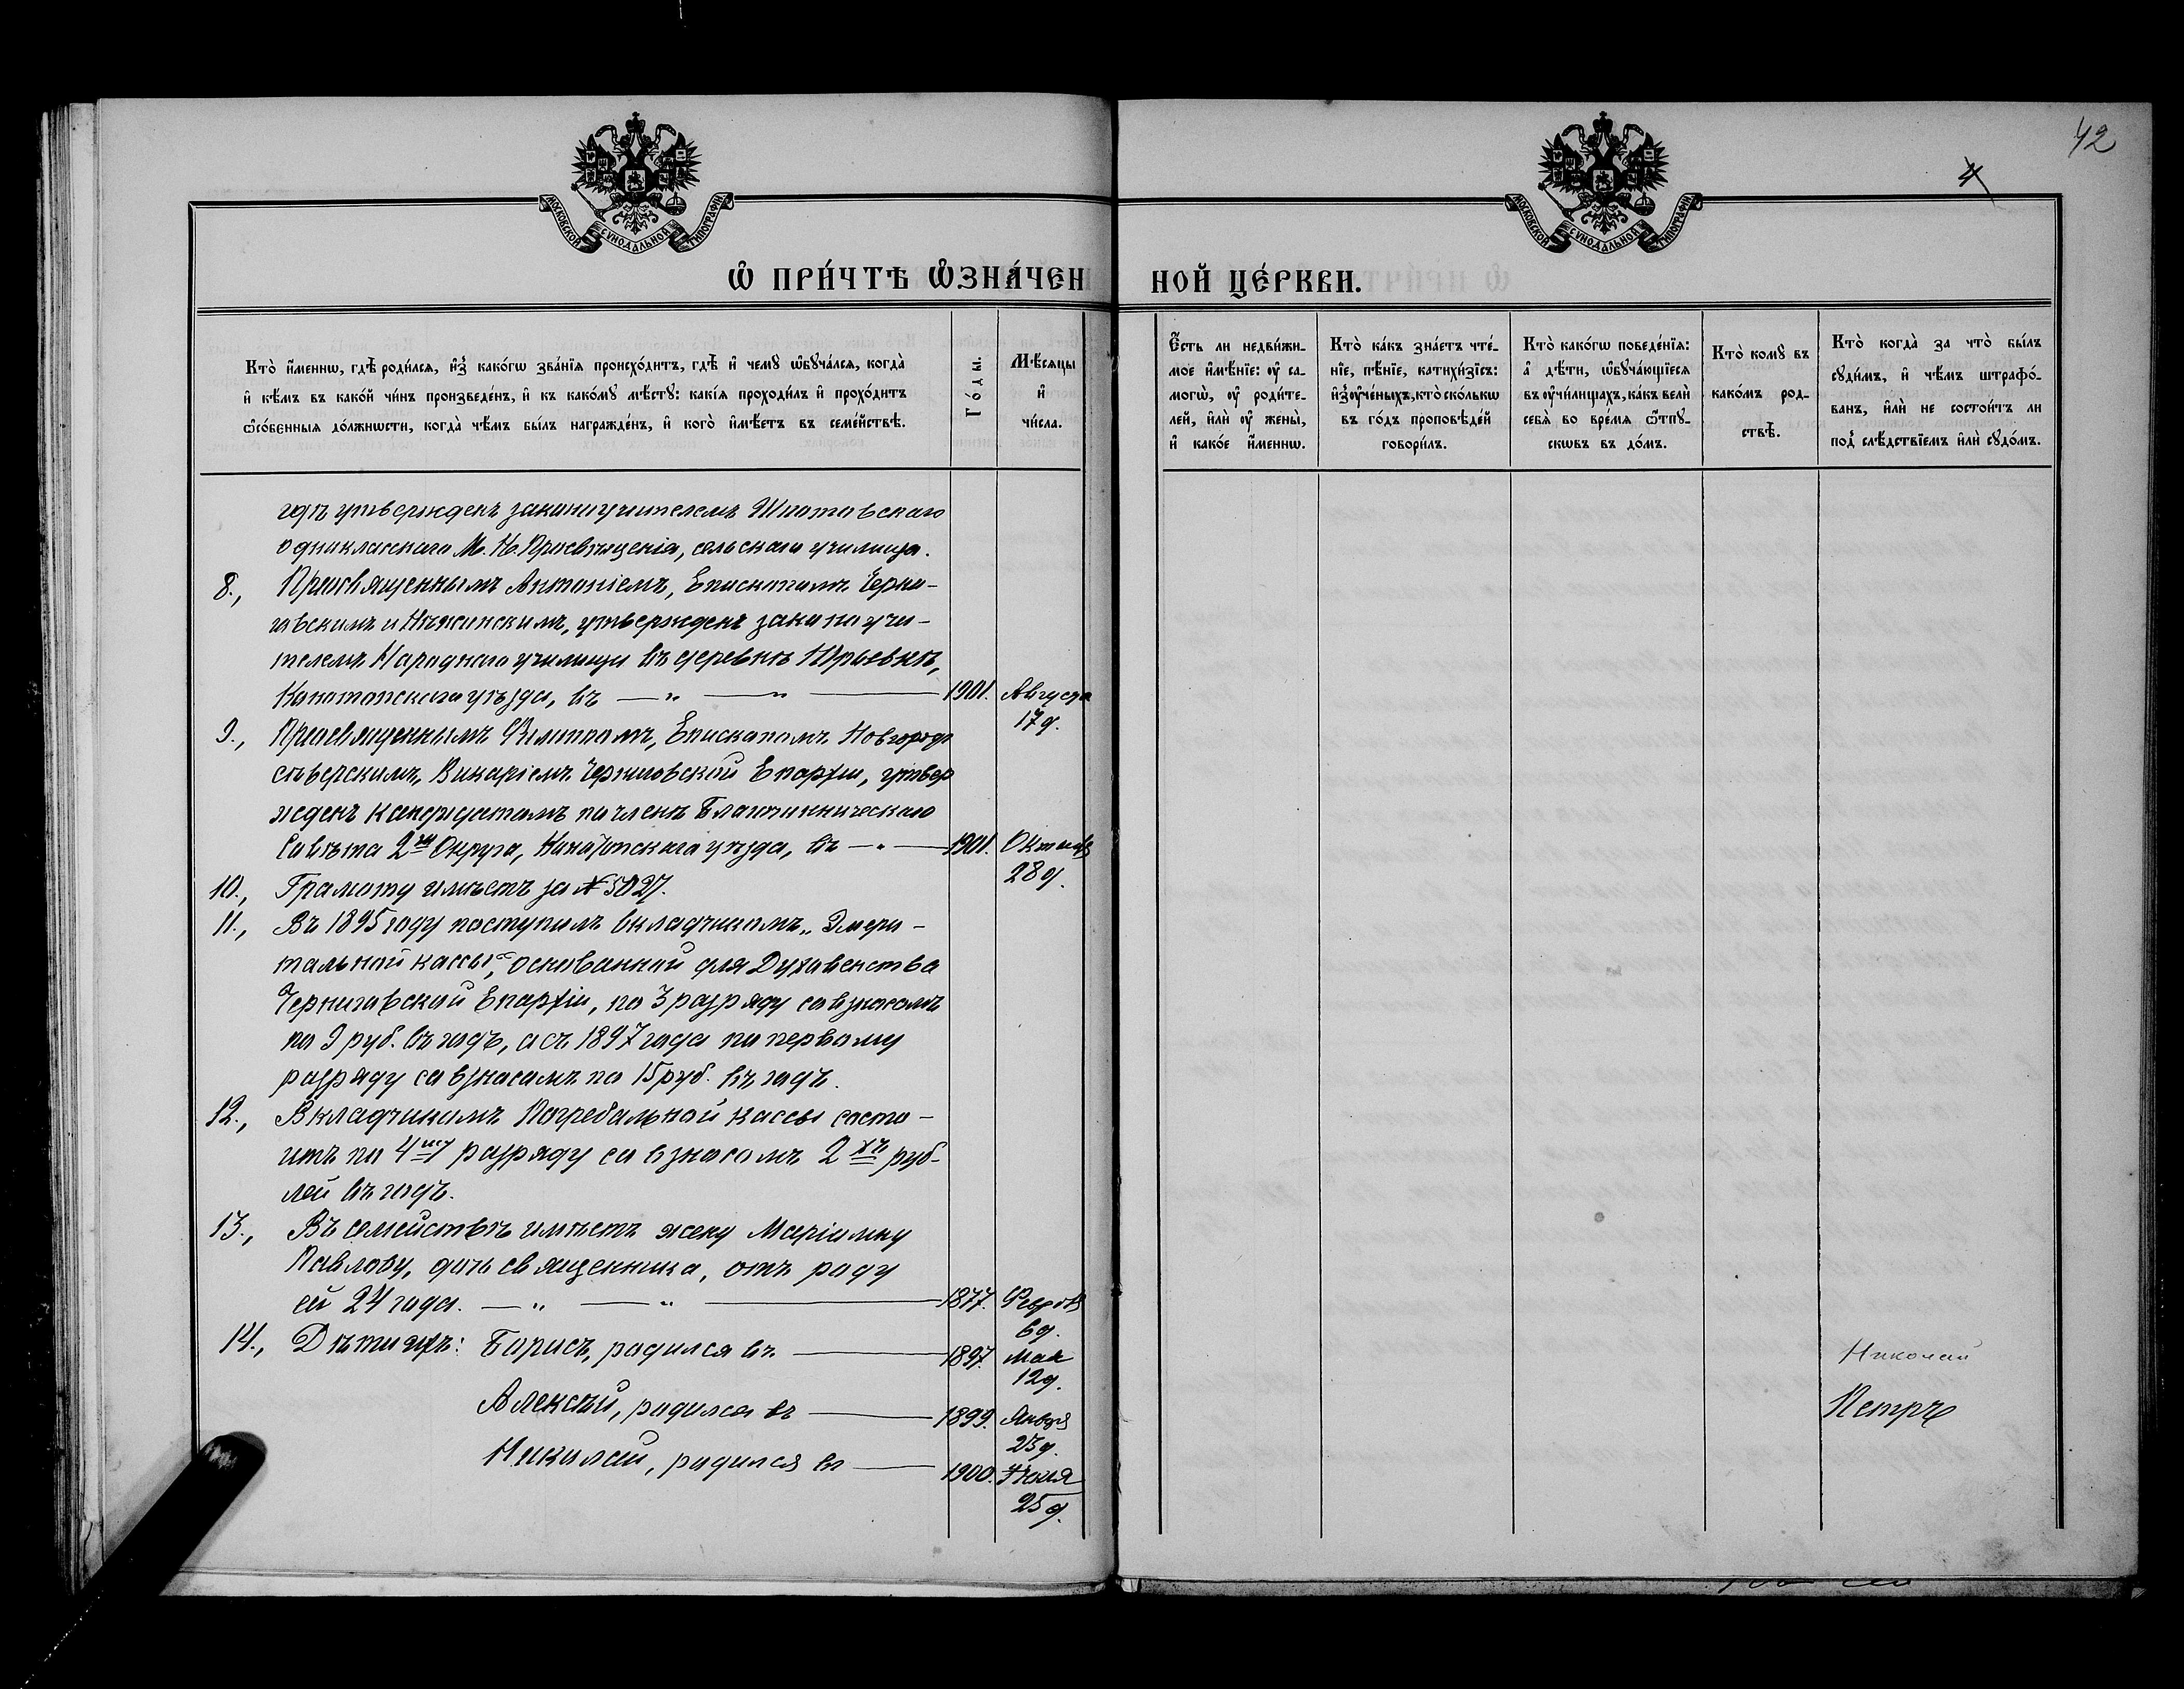 42
4
МОСКОВСКОЙ СѴНОДАЛЬНОЙ ТИПОГРАФІИ
МОСКОВСКОЙ СѴНОДАЛЬНОЙ ТИПОГРАФІИ
Ѡ ПРИ́ЧТѢ ѠЗНА́ЧЕННОЙ ЦЕ́РКВИ.
Кто̀ и҆́меннѡ, гдѣ̀ роди́лся, и҆з̾ како́гѡ зва́нїѧ происхо́дитъ, гдѣ̀ и҆ чемꙋ̀ ѡ҆бꙋча́лся, когда̀
и҆ кѣ́мъ въ како́й чи́нъ произведе́нъ, и҆ къ како́мꙋ мѣ́стꙋ: какі́ѧ проходи́лъ и҆ прохо́дитъ
ѻ҆со́бенныѧ до́лжнѡсти, когда̀ чѣ́мъ бы́лъ награжде́нъ, и҆ кого̀ и҆мѣ́етъ въ семе́йствѣ.
Го́ды.
Мѣ́сѧцы
и҆
чи́сла.
Е҆́сть ли недви́жи-
мое и҆мѣ́нїе: ᲂу҆ са-
могѡ̀, ᲂу҆ роди́те-
лей, и҆лѝ ᲂу҆ жены̀,
и҆ како́е и҆́меннѡ.
Кто̀ ка́къ зна́етъ чте́-
нїе, пѣ́нїе, катихи́зїсъ:
и҆з̾ ᲂу҆че́ныхъ, кто̀ ско́лькѡ
въ го́дъ проповѣ́дей
говори́лъ.
Кто̀ како́гѡ поведе́нїѧ:
а҆ дѣ́ти, ѡ҆бꙋча́ющїесѧ
въ ᲂу҆чи́лищахъ, ка́къ велѝ
себѧ̀ во вре́мѧ ѿпꙋ-
скѡвъ въ до́мъ.
Кто̀ комꙋ̀ въ
како́мъ род-
ствѣ̀.
Кто̀ когда̀ за что̀ бы́лъ
сꙋди́мъ, и҆ чѣ́мъ штрафо́-
ванъ, и҆лѝ не состои́тъ ли
под̾ слѣ́дствїемъ и҆лѝ сꙋдо́мъ.
годъ утвержденъ законоучителемъ Шпотовскаго
одноклассного М. Н. Просвѣщенія, сельскаго училища.
8., Преосвященнымъ Антоніемъ, Епископомъ Черни-
говскимъ и Нѣжинскимъ, утвержденъ законоучи-
телемъ Народного училища въ деревнѣ Юрьевкѣ,
Конотопского уѣзда, въ — „ — „ — 1901. Августа
17 д.
9., Преосвященнымъ Филиппомъ, Епископомъ Новгородъ
сѣверскимъ, Викаріемъ Черниговской Епархіи, утвер
жденъ кандидатомъ по членѣ Благочинническаго
Совѣта 2го Округа, Конотопскаго уѣзда, въ — „ — 1901. Октября
28 д.
10., Грамоту имѣетъ за № 5027.
11., Въ 1895 году поступилъ вкладчикомъ „Эмери-
тальной кассы“, основанной для Духовенства
Черниговской Епархіи, по 3 разряду со взносомъ
по 9 руб. въ годъ, а съ 1897 года по первому
разряду со взносомъ по 15 руб. въ годъ.
12., Вкладчикомъ Погребальной кассы состо-
итъ по 4му разряду со взносомъ 2хъ руб-
лей въ годъ.
13., Въ семействѣ имѣетъ жену Маріамну
Павлову, дочь священника, отъ роду
ей 24 года. — „ — „ — 1877. Февраля
6 д.
14., Дѣти ихъ: Борисъ, родился въ — 1897. Мая
12 д.
Николай
Алексѣй, родился въ — 1899. Января
23 д.
Петръ
Николай, родился въ — 1900. Іюня
25 д.